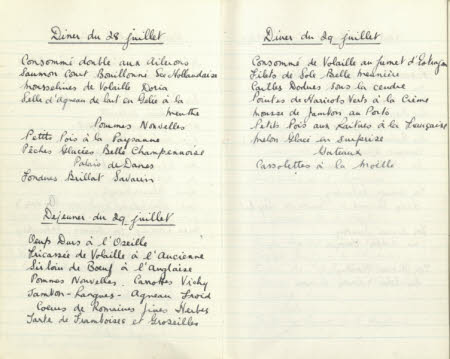 Dîner du 28 juillet
Consommé double aux Ailerons
Saumon Court Bouillonné Sce Hollandaise
Mousselines de Volaille Doria
Selle d'agneau de lait en Gelée à la
Menthe
Pommes Nouvelles
Petits Pois à la Paysanne
Pêches Glacées Belle Champenoise
Palais de Dames
Fondues Brillat Savarin
Déjeuner du 29 juillet
Oeufs Durs à l'Oseille
Fricassée de Volaille à l'Ancienne
Sirloin de Bœuf à l'Anglaise
Pommes Nouvelles Carottes Vichy
Jambon - Langues - Agneau Froid
Coeurs de Romaines fines Herbes
Tarte de Framboises et Groseilles
Dîner du 29 juillet
Consommé de Volaille au fumet d'Estragon
Filets de Sole Belle Meunière
Cailles Dodues sous la cendre
Pointes de Haricots Verts à la Crème
Mousse de Jambon au Porto
Petits Pois aux Laitues à la Française
Melon Glacé en Surprise
Gateaux
Cassolettes à la Moëlle